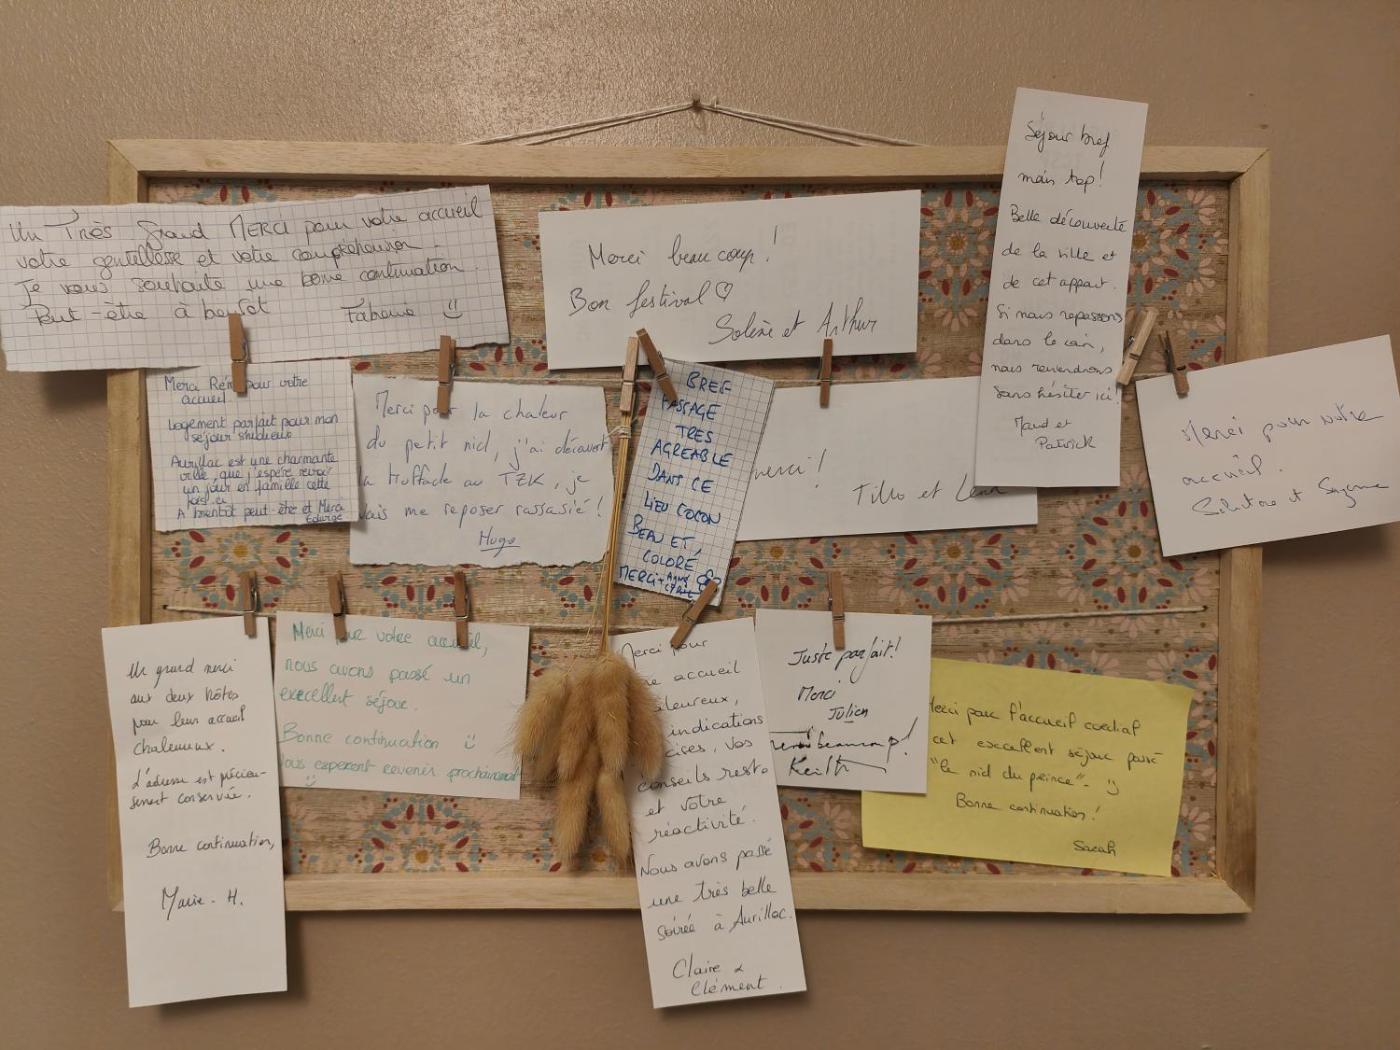 Un Très Grand MERCI pour votre accueil
votre gentillesse et votre compréhension.
Je vous souhaite une bonne continuation.
Peut-être à bientôt
Merci beaucoup !
Bon festival ♡
Solène et Arthur
Séjour bref
mais top !
Belle découverte
de la ville et
de cet appart.
Si nous repassons
dans le coin,
nous reviendrons
sans hésiter ici !
Maud et
Patrick
Merci pour votre
accueil.
Merci Rémi pour votre
accueil
Logement parfait pour mon
séjour studieux
Aurillac est une charmante
ville, que j'espère revoir
un jour en famille cette
fois ci
A bientôt peut-être et Merci
Edwige
Merci pour la chaleur
du petit nid, j'ai découvert
la truffade au TZK, je
vais me reposer rassasié !
Hugo
BREF
PASSAGE
TRES
AGREABLE
DANS CE
LIEU COCON
BEAU ET,
COLORÉ
MERCI
merci !
et
Un grand merci
aux deux hôtes
pour leur accueil
chaleureux.
L'adresse est précieu-
sement conservée.
Bonne continuation,
Marie-H.
Merci pour votre accueil,
nous avons passé un
execellent séjour.
Bonne continuation
nous esperont revenir prochainement
Merci pour
accueil
indications
vos
conseils resto
et votre
réactivité.
Nous avons passé
une très belle
soirée à Aurillac.
Claire &
Clément
Juste parfait !
Merci
Julien
merci beaucoup !
Keith
Merci pour l'accueil cordial
cet excellent séjour passé
"le nid du prince".
Bonne continuation !
Sarah